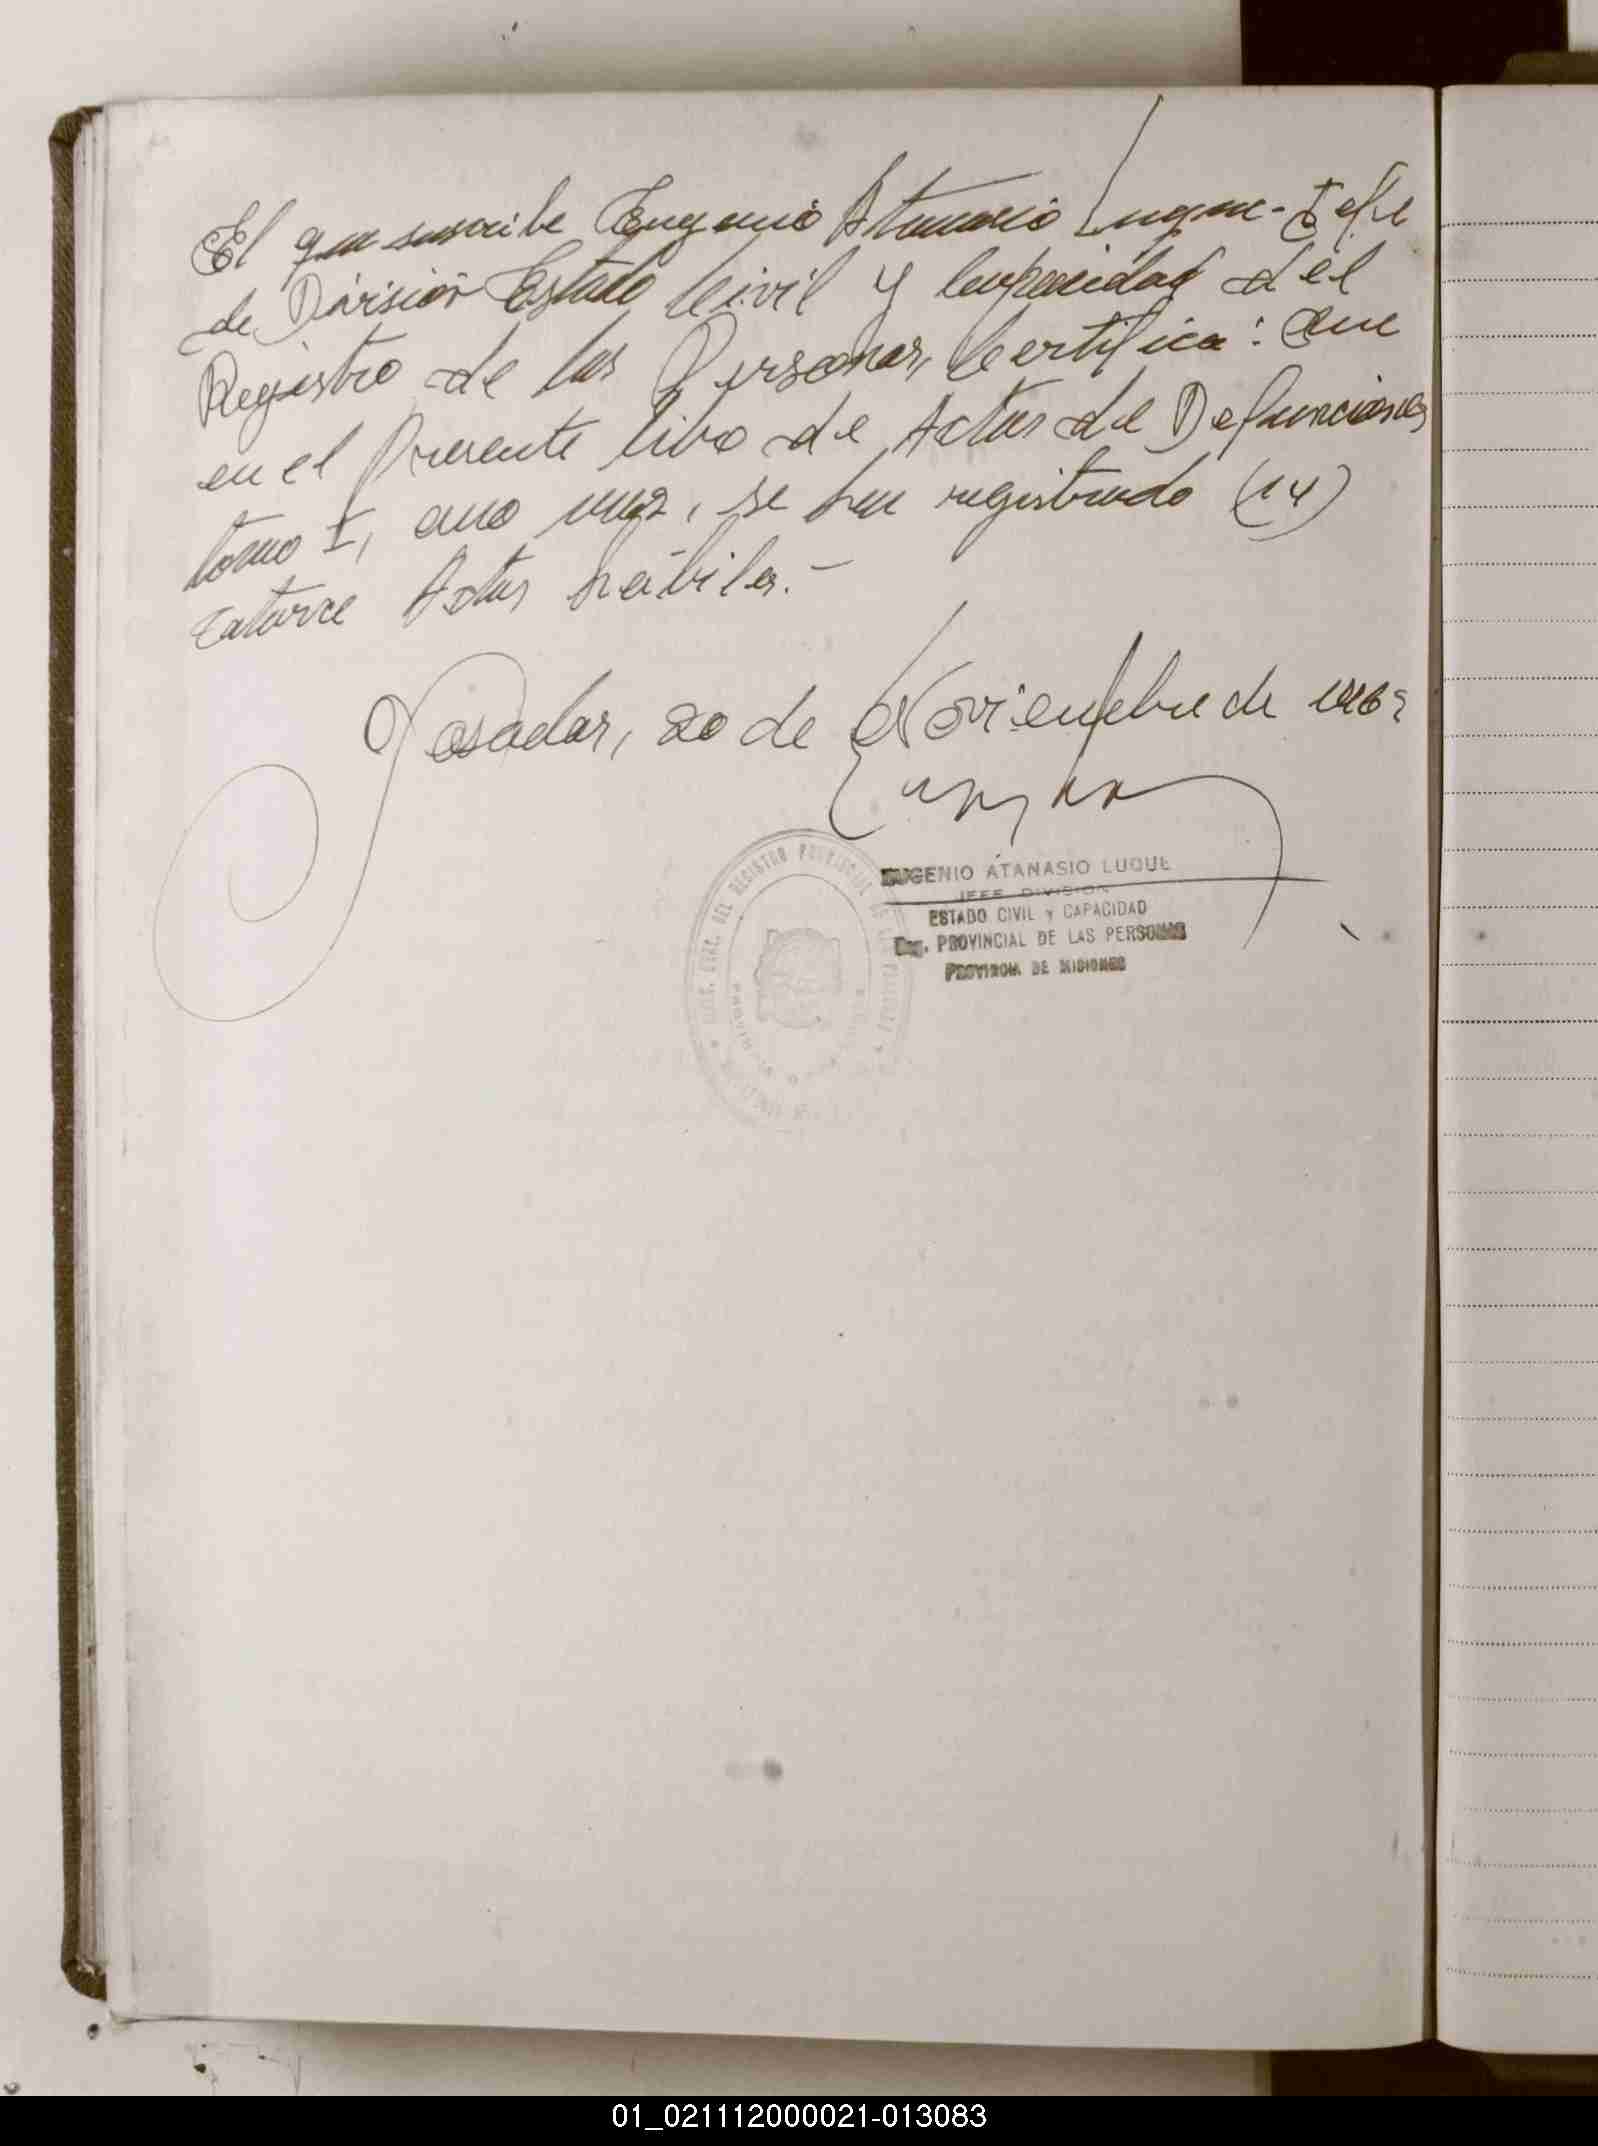 El que suscribe Eugenio Atanasio Luque - Jefe
de División Estado Civil y Capacidad del
Registro de las Personas, Certifica: Que
en el Presente libro de Actas de Defunciones
tomo I, año, se han registrado (14)
catorce Actas hábiles.-
Posadas, 20 de Noviembre de
EUGENIO ATANASIO LUQUE
JEFE DIVISION
ESTADO CIVIL y CAPACIDAD
Reg. PROVINCIAL DE LAS PERSONAS
PROVINCIA DE MISIONES
DEL REGISTRO PROVINCIAL DE
01_021112000021-013083